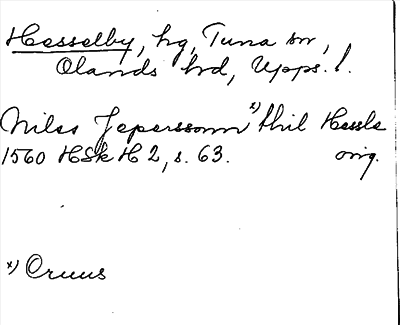 Hesselby, hg, Tuna sn,
Olands hd, Upps. l.
Niels Jepersson x) thil Hessle
1560 HSk H 2, s. 63. orig.
x) Cruus